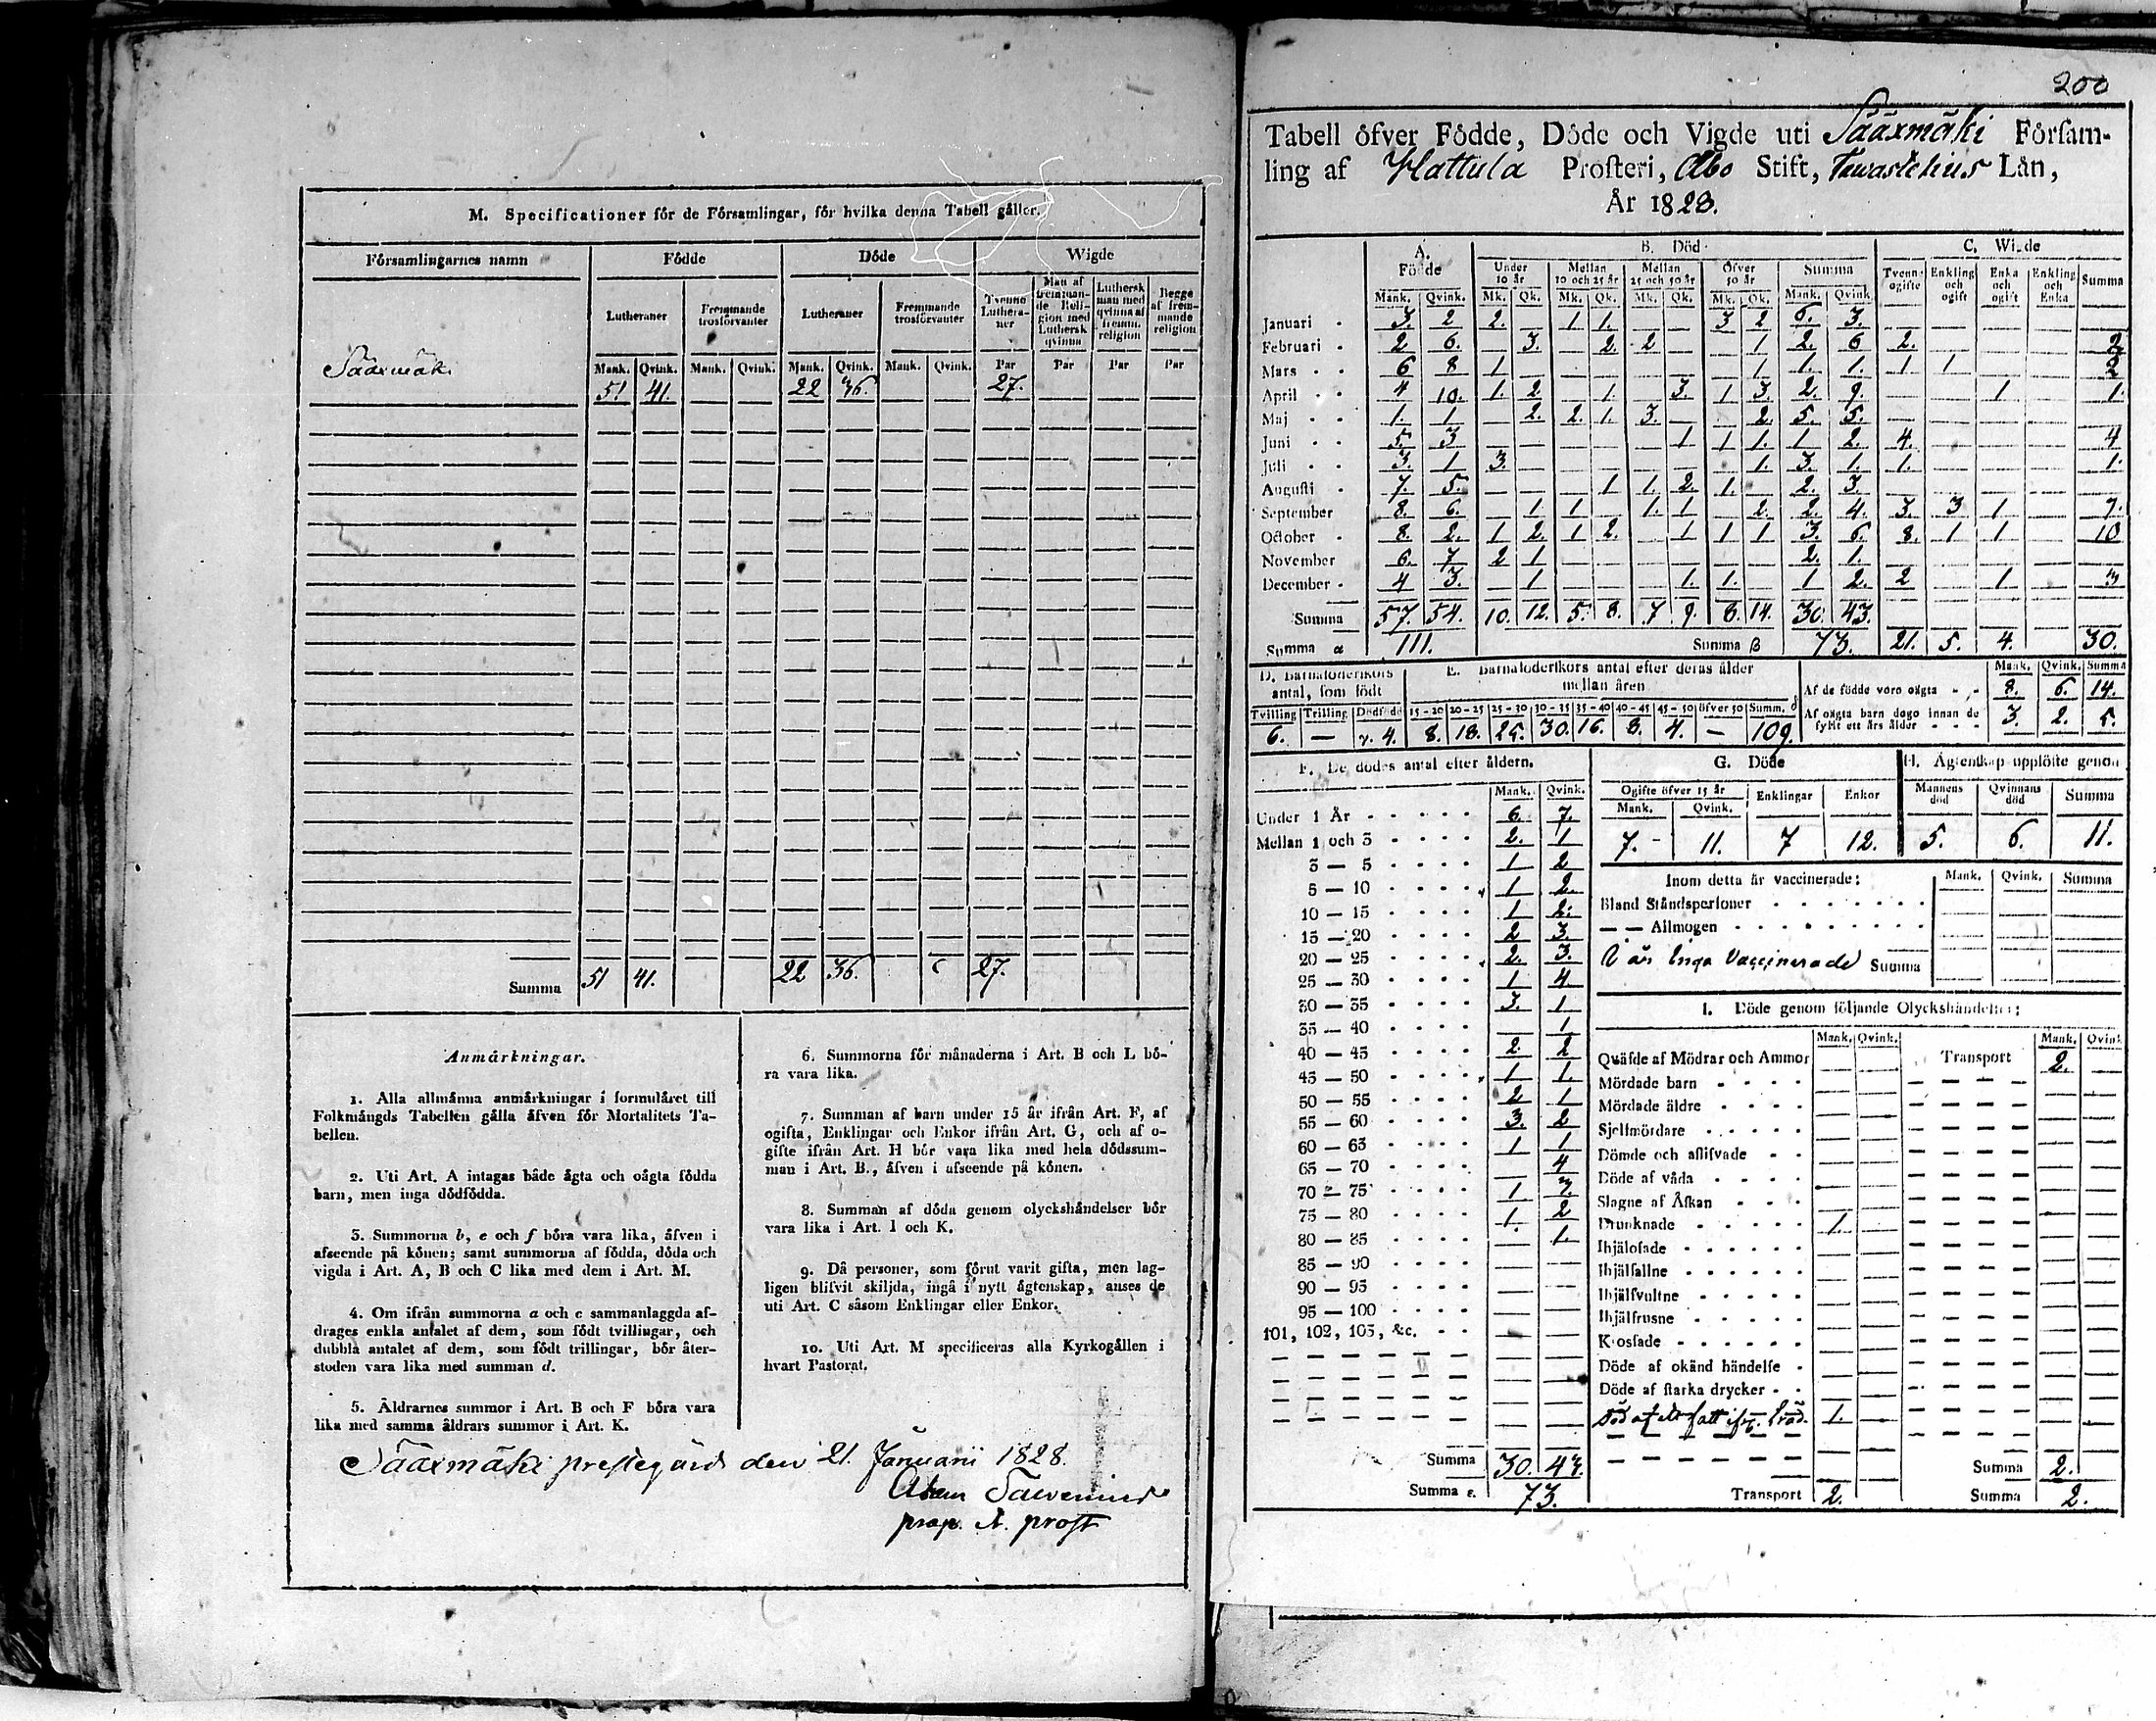 M. Specificationer för de Församlingar, för hvilka denna Tabell gäller.
Församlingarnes namn Födde Döde Wigde
Lutheraner Fremmande trosförvanter Lutheraner Fremmande trosförvanter Tvenne Lutheraner Man af fremmande Religion med Luthersk qvinna Luthersk man med qvinna af fremm. religion Begge af fremmande religion
Mank. Qvink. Mank. Qvink. Mank. Qvink. Mank. Qvink. Par Par Par Par
Sääxmäki 51 41. 22 36. 27.
Summa 51 41. 22 36. 27.
Anmärkningar.
1. Alla allmänna anmärkningar i formuläret till
Folkmängds Tabellen gälla äfven för Mortalitets Ta-
bellen.
2. Uti Art. A intagas både ägta och oägta födda
barn, men inga dödfödda.
3. Summorna b, e och f böra vara lika, äfven i
afseende på könen; samt summorna af födda, döda och
vigda i Art. A, B och C lika med dem i Art. M.
4. Om ifrån summorna a och c sammanlaggda af-
drages enkla antalet af dem, som födt tvillingar, och
dubbla antalet af dem, som födt trillingar, bör åter-
stoden vara lika med summan d.
5. Åldrarnes summor i Art. B och F böra vara
lika med samma åldrars summor i Art. K.
6. Summorna för månaderna i Art. B och L bö-
ra vara lika.
7. Summan af barn under 15 år ifrån Art. F, af
ogifta, Enklingar och Enkor ifrån Art. G, och af o-
gifte ifrån Art. H bör vara lika med hela dödssum-
man i Art. B., äfven i afseende på könen.
8. Summan af döda genom olyckshändelser bör
vara lika i Art. I och K.
9. Då personer, som förut varit gifta, men lag-
ligen blifvit skiljda, ingå i nytt ägtenskap, anses de
uti Art. C såsom Enklingar eller Enkor.
10. Uti Art. M specificeras alla Kyrkogällen i
hvart Pastorat.
Sääxmäki prestegård den 21. Januarii 1828.
prost
200
Tabell öfver Födde, Döde och Vigde uti Sääxmäki Försam-
ling af Hattula Prosteri, Åbo Stift, Tawastehus Län,
År 1828.
A. Födde B. Död C. Wigde
Under 10 år Mellan 10 och 25 år Mellan 25 och 50 år Öfver 50 år Summa Tvenne ogifte Enkling och ogift Enka och ogift Enkling och Enka Summa
Mank. Qvink. Mk. Qk. Mk. Qk. Mk. Qk. Mk. Qk. Mank. Qvink.
Januari 3. 2 2. 1 1. 3 2 6. 3.
Februari 2 6. 3. 2. 2 1 2. 6 2. 2
Mars 6 8 1 1 1. 1. 1 1 2
April 4 10. 1. 2. 1. 3. 1 3. 2. 9. 1 1.
Maj 1. 1 2. 2. 1. 3. 2. 5. 5.
Juni 5. 3 1 1 1. 1 2. 4. 4
Juli 3. 1 3. 1. 3. 1. 1. 1.
Augusti 7. 5. 1 1. 2. 1. 2. 3.
September 8. 6. 1 1 1. 1 2. 2. 4. 3. 3 1 7.
October 8. 2. 1 2. 1 2. 1 1 1 3. 6. 8. 1 1 10
November 6. 7. 2 1 2. 1.
December 4 3. 1 1. 1. 1 2. 2 1 3
Summa 57. 54. 10. 12. 5. 8. 7 9. 8. 14. 30. 43.
Summa a 111. Summa B 73. 21. 5. 4. 30.
D. Barnaföderskors antal, som födt
E. Barnaföderskors antal efter deras ålder mellan åren
Tvilling Trilling Dödfödde 15-20 20-25 25-30 30-35 35-40 40-45 45-50 öfver 50 Summ. d
6. — 4. 8. 18. 25. 30. 16. 8. 4. — 109.
Mank. Qvink. Summa
Af de födde voro oägta 8. 6. 14.
Af oägta barn dogo innan de fyllt ett års ålder 3. 2. 5.
F. De dödes antal efter åldern.
Mank. Qvink.
Under 1 År 6. 7.
Mellan 1 och 3 2. 1
3 — 5 1 2
5 — 10 1 2.
10 — 15 1 2.
15 — 20 2 3.
20 — 25 2. 3.
25 — 30 1 4
30 — 35 3. 1
35 — 40 1
40 — 45 2. 2
45 — 50 1 1.
50 — 55 2 1
55 — 60 3. 2
60 — 65 1 1
65 — 70 4
70 — 75 1 3.
75 — 80 1. 2
80 — 85 1.
85 — 90
90 — 95
95 — 100
101, 102, 103, &c.
Summa 30. 43.
Summa e. 73.
G. Döde
Ogifte öfver 15 år Enklingar Enkor
Mank. Qvink.
7. 11. 7 12.
H. Ägtenskap upplöste genom
Mannens död Qvinnans död Summa
5. 6. 11.
Inom detta år vaccinerade: Mank. Qvink. Summa
Bland Ståndspersoner
— — Allmogen
är Inga Vaccinerade Summa
I. Döde genom följande Olyckshändelser:
Mank. Qvink. Mank. Qvink.
Qväfde af Mödrar och Ammor Transport 2.
Mördade barn
Mördade äldre
Sjelfmördare
Dömde och aflifvade
Döde af våda
Slagne af Åskan
Drunknade 1.
Ihjälosade
Ihjälfallne
Ihjälsvultne
Ihjälfrusne
Krossade
Döde af okänd händelse
Döde af starka drycker
1.
Summa 2.
Transport 2. Summa 2.